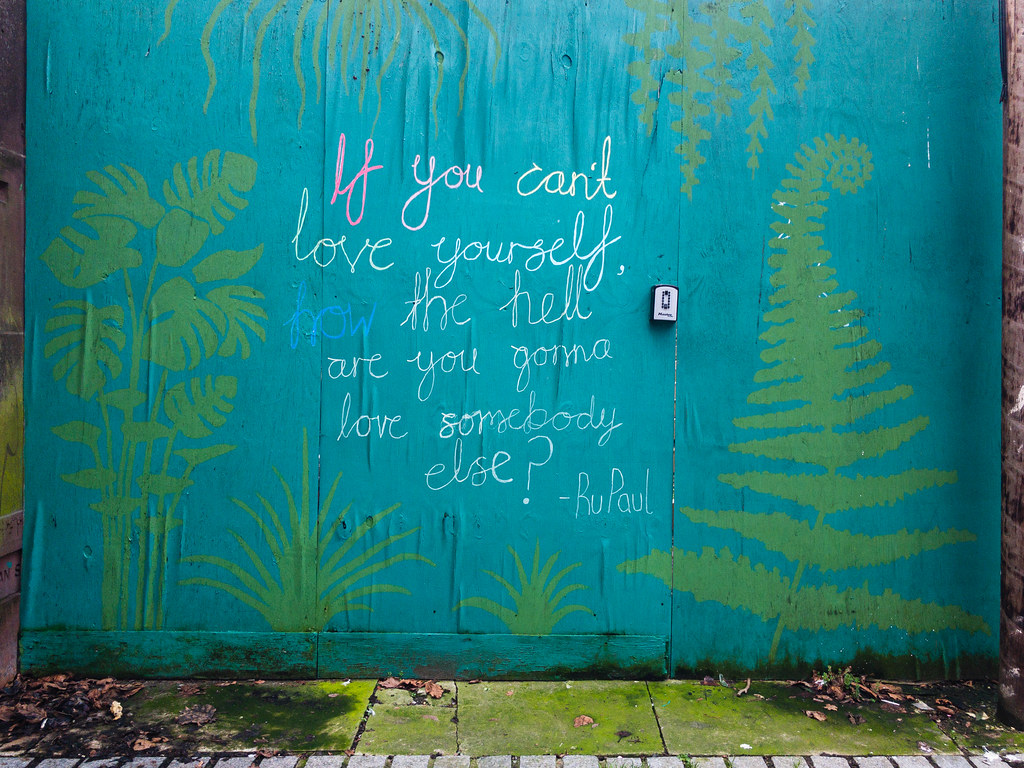 If you can't
love yourself,
how the hell
are you gonna
love somebody
else?
-RuPaul